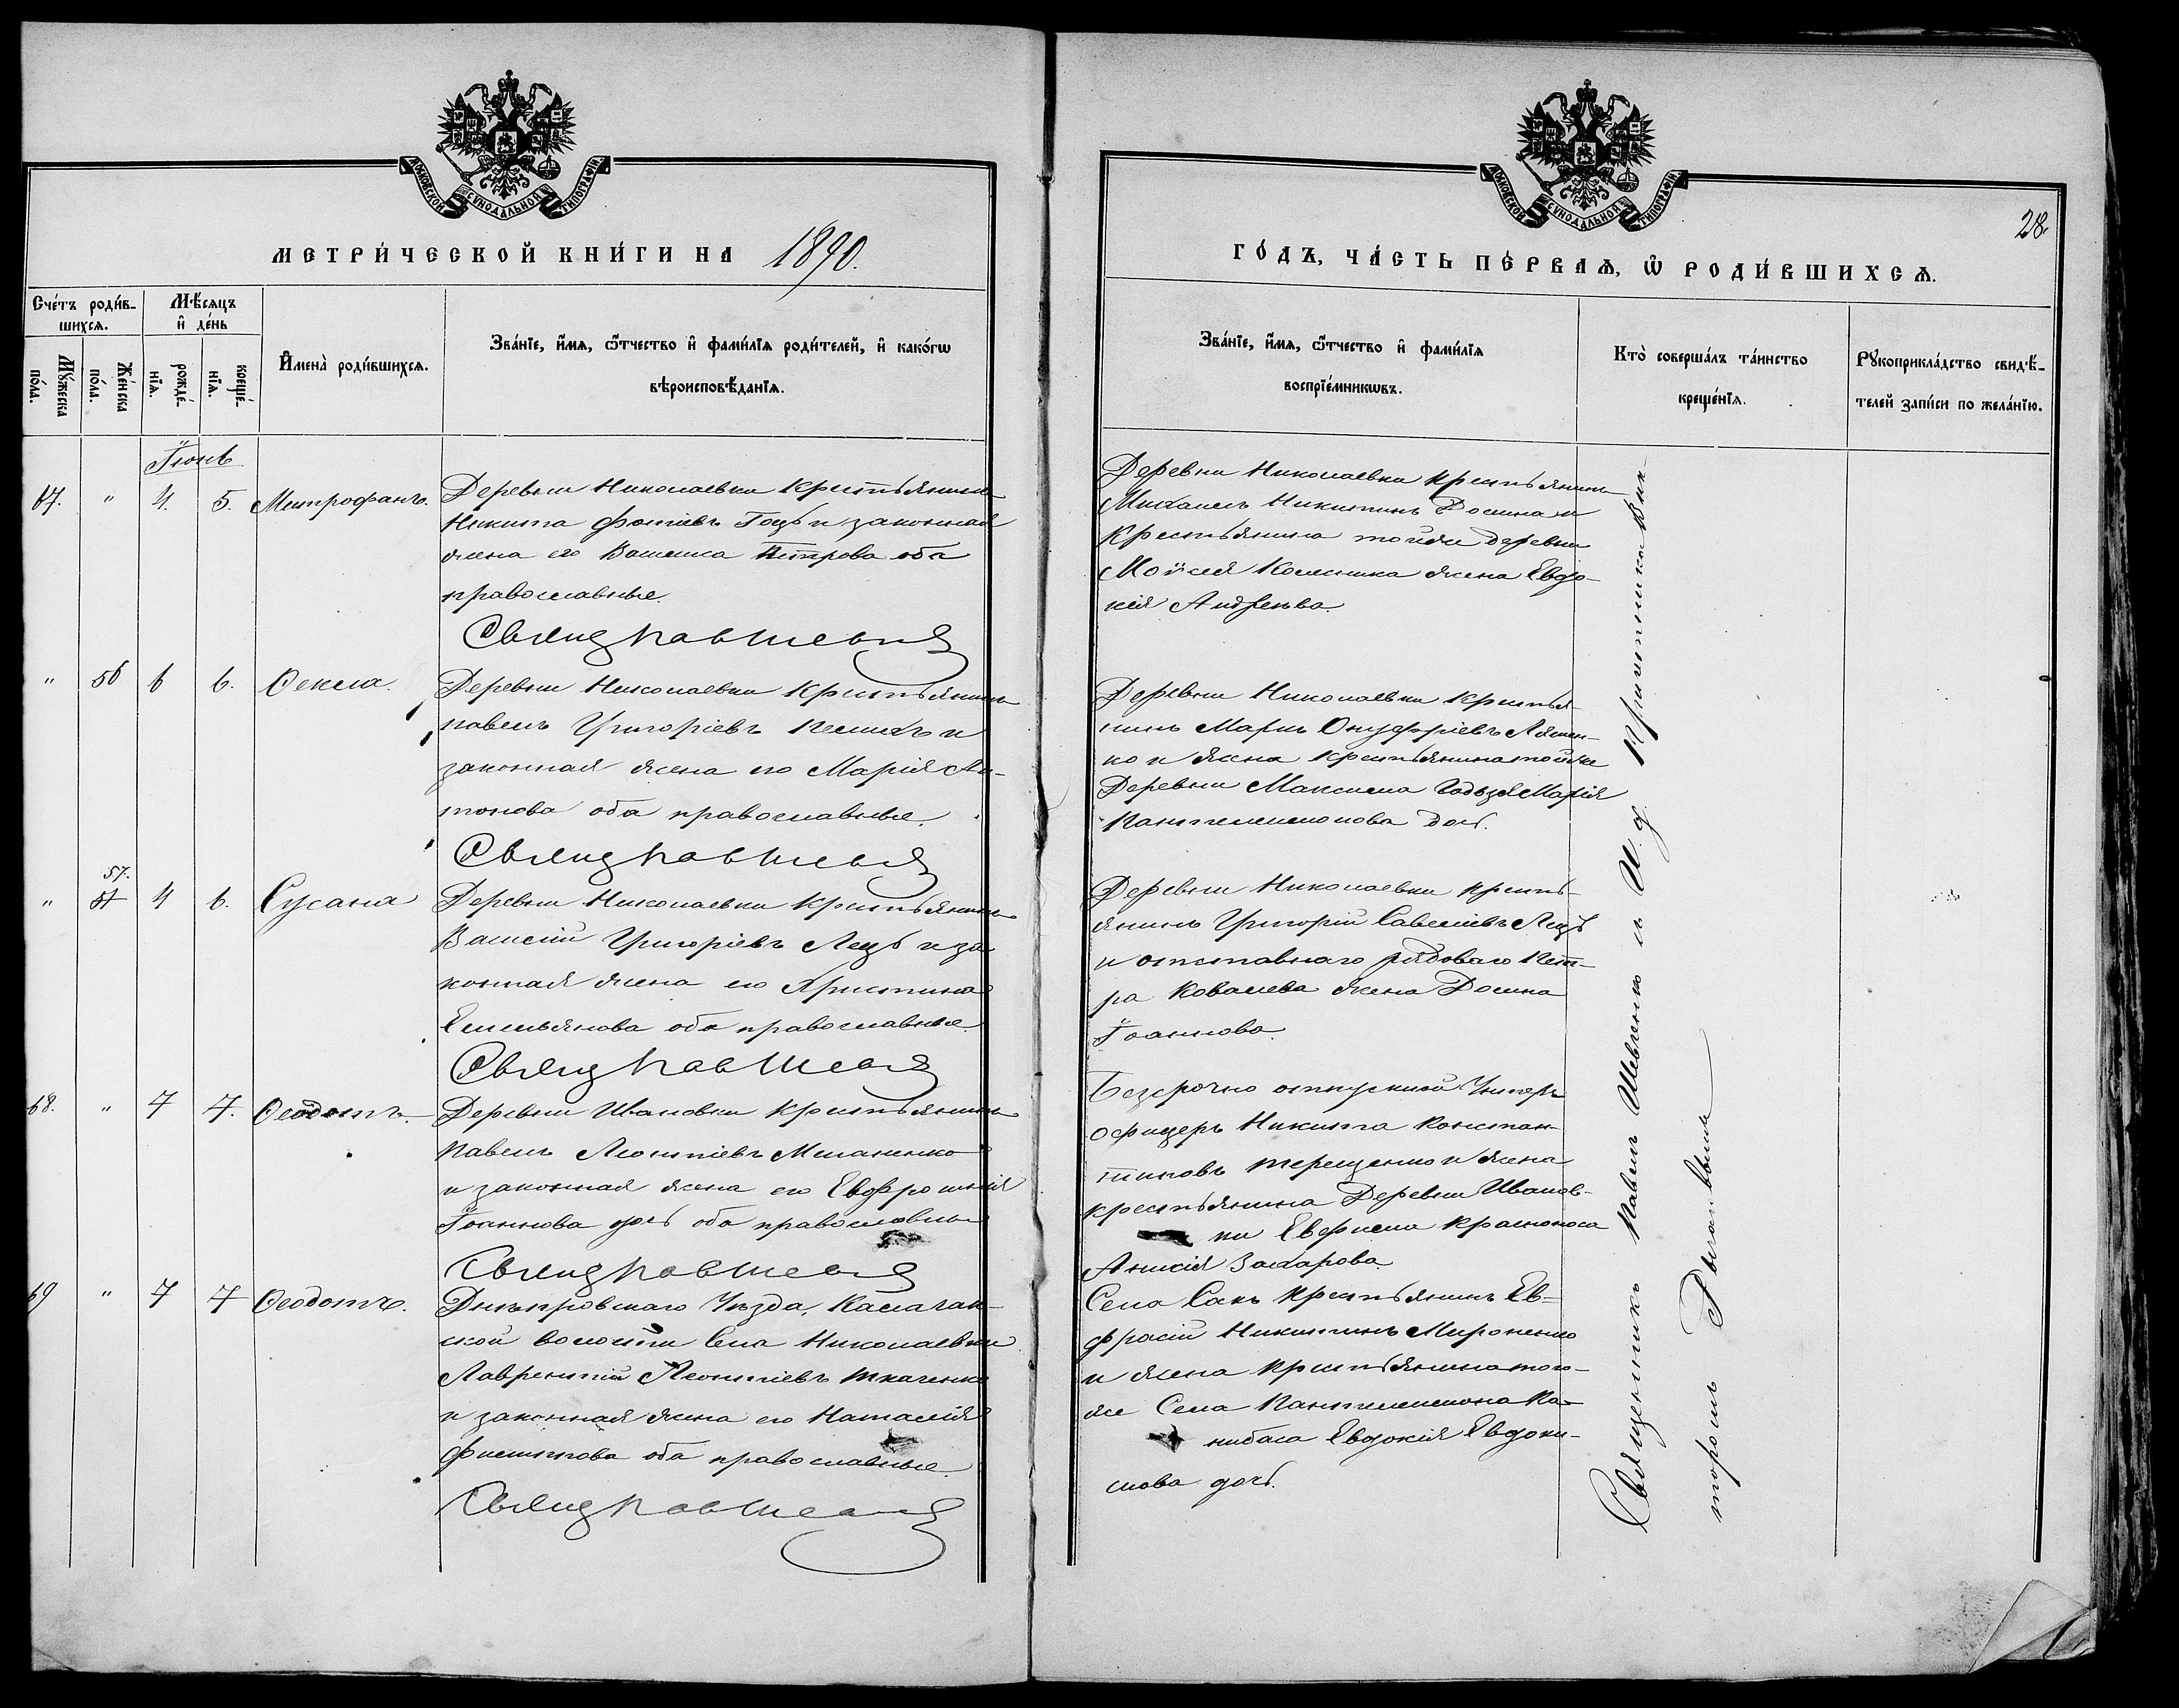 МОСКОВСКОЙ СѴНОДАЛЬНОЙ ТИПОГРАФІИ
МЕТРИ́ЧЕСКОЙ КНИ́ГИ НА 1890.
Сче́тъ роди́в-
шихсѧ.
Мѣ́сѧцъ
и҆ де́нь
Мꙋ́жеска по́ла.
Же́нска по́ла.
рожде́-
нїѧ.
креще́-
нїѧ.
И҆мена̀ роди́вшихсѧ.
Зва́нїе, и҆́мѧ, ѻ҆́тчество и҆ фами́лїѧ роди́телей, и҆ како́гѡ
вѣроисповѣ́данїѧ.
Іюнь
67. " 4. 5. Митрофанъ.
Деревни Николаевки крестьянинъ
Никита Фотіевъ Гоцъ и законная
жена его Васса Петрова оба
православные.
Свящ Пав Шевч
" 56 6 6. Ѳекла.
Деревни Николаевки крестьянинъ
Павелъ Григоріевъ и
законная жена его Марія Ан-
тонова оба православные.
Свящ Пав Шевч
" 57. 4 6. Сусана
Деревни Николаевки крестьянинъ
Василій Григоріевъ Лецъ и за
конная жена его Христина
Емельянова оба православные.
Свящ Пав Шевч
68. " 7 7. Ѳеодотъ.
Деревни Ивановки крестьянинъ
Павелъ Леонтіевъ Миланенко
и законная жена его Евфросинія
Іоаннова дочь оба православны
Свящ Пав Шевч
69 " 7 7 Ѳеодотъ.
Днѣпровскаго Уѣзда, Каланчак-
ской волости Села Николаевки
Лаврентій Леонтіевъ Ткаченко
и законная жена его Наталія
Филиппова оба православные.
Свящ Пав Шевч
МОСКОВСКОЙ СѴНОДАЛЬНОЙ ТИПОГРАФІИ
28.
ГО́ДЪ, ЧА́СТЬ ПЕ́РВАѦ, Ѡ҆ РОДИ́ВШИХСѦ.
Зва́нїе, и҆́мѧ, ѻ҆́тчество и҆ фами́лїѧ
воспрїе́мникѡвъ.
Кто̀ соверша́лъ та́инство
креще́нїѧ.
Рꙋкоприкла́дство свидѣ́-
телей за́писи по жела́нїю.
Деревни Николаевки крестьянинъ
Михаилъ Никитинъ и
крестьянина тойже деревни
Моисея Колесника жена Евдо-
кія Андреева.
Деревни Николаевки крестья-
нинъ Маркъ Онуфріевъ Ляшен-
ко и жена крестьянина тойже
Деревни Максима Марія
Пантелеимонова дочь.
Деревни Николаевки кресть-
янинъ Григорій Савеліевъ Лецъ
и отставнаго рядоваго Пет-
ра Ковалева жена Домна
Іоаннова.
Безсрочно отпускной Унтеръ
офицеръ Никита Констан-
тиновъ Терещенко и жена
крестьянина Деревни Иванов-
ки Евфима Красноноса
Анисія Захарова
Села Сакъ крестьянинъ Ев-
фрасій Никитинъ Мироненко
и жена крестьянина того-
же Села Пантелеимона Ка-
нибаса Евдокія Евдоки-
мова дочь.
Священникъ Павелъ Шевченко съ И. д. Причетника Вик
торомъ